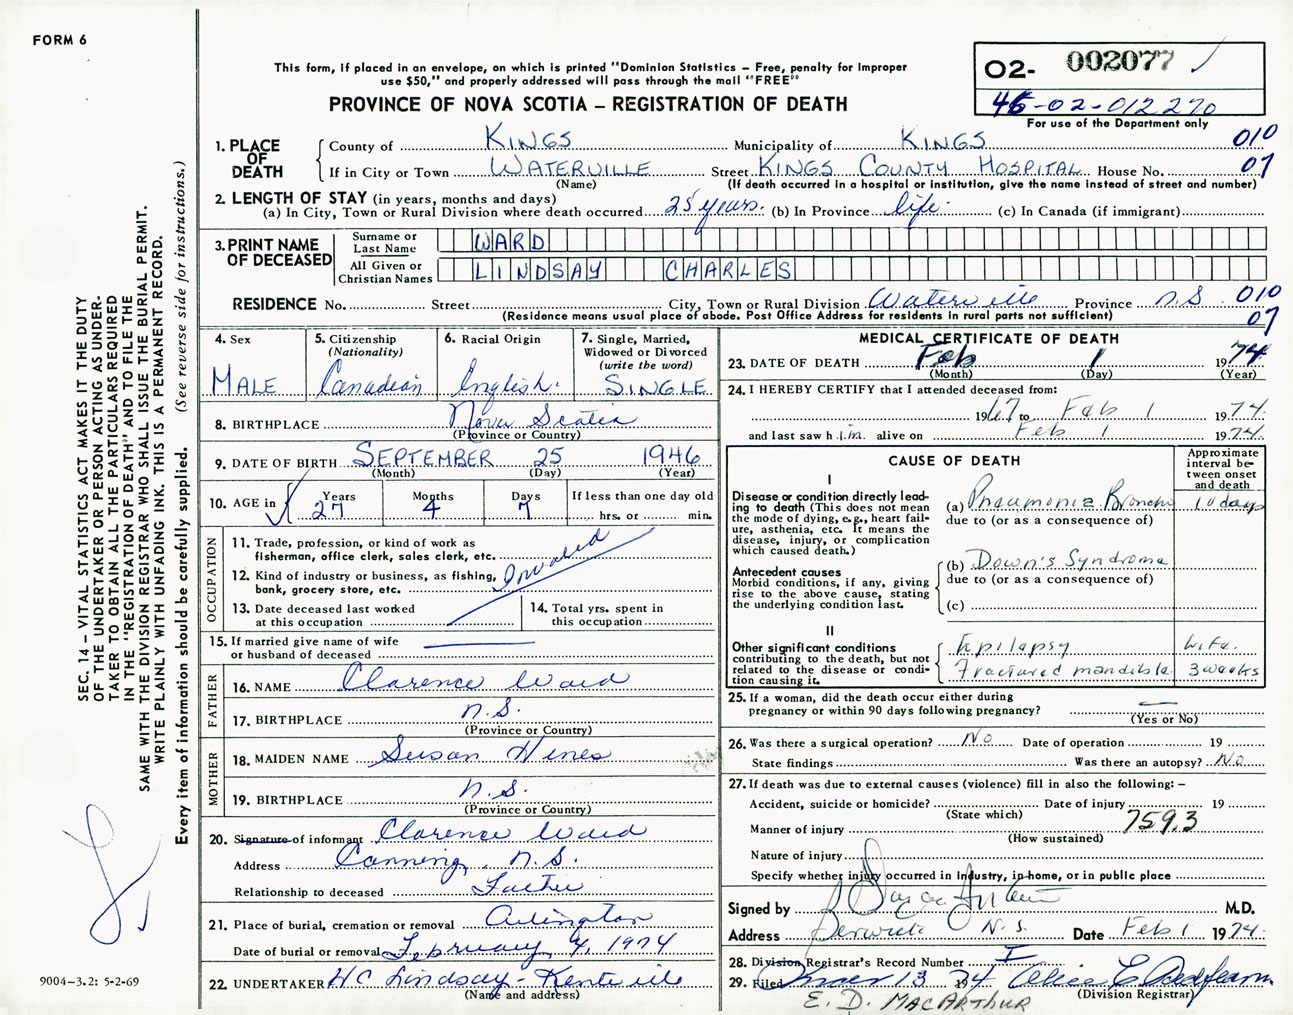 FORM 6
This form, if placed in an envelope, on which is printed "Dominion Statistics – Free, penalty for improper
use $50," and properly addressed will pass through the mail "FREE"
PROVINCE OF NOVA SCOTIA – REGISTRATION OF DEATH
02- 002077
46-02-012270
For use of the Department only
1. PLACE OF DEATH
County of KINGS Municipality of KINGS 010
If in City or Town WATERVILLE Street KINGS COUNTY HOSPITAL House No. 07
(Name) (If death occurred in a hospital or institution, give the name instead of street and number)
2. LENGTH OF STAY (in years, months and days)
(a) In City, Town or Rural Division where death occurred 25 years. (b) In Province life. (c) In Canada (if immigrant)
3. PRINT NAME OF DECEASED
Surname or Last Name WARD
All Given or Christian Names LINDSAY CHARLES
RESIDENCE No. Street City, Town or Rural Division Waterville Province N.S. 010
(Residence means usual place of abode. Post Office Address for residents in rural parts not sufficient) 07
4. Sex
MALE
5. Citizenship
(Nationality)
Canadian
6. Racial Origin
English.
7. Single, Married,
Widowed or Divorced
(write the word)
SINGLE
8. BIRTHPLACE Nova Scotia
(Province or Country)
9. DATE OF BIRTH SEPTEMBER 25 1946
(Month) (Day) (Year)
10. AGE in Years Months Days If less than one day old
27 4 7 hrs. or min.
OCCUPATION
11. Trade, profession, or kind of work as
fisherman, office clerk, sales clerk, etc.
12. Kind of industry or business, as fishing,
bank, grocery store, etc. Invalid
13. Date deceased last worked
at this occupation
14. Total yrs. spent in
this occupation
15. If married give name of wife
or husband of deceased
FATHER
16. NAME Clarence Ward
17. BIRTHPLACE N.S.
(Province or Country)
MOTHER
18. MAIDEN NAME Susan Hines
19. BIRTHPLACE N.S.
(Province or Country)
20. Signature of informant Clarence Ward
Address Canning, N.S.
Relationship to deceased Father
21. Place of burial, cremation or removal Arlington
Date of burial or removal February 4, 1974
22. UNDERTAKER HC Lindsay - Kentville
(Name and address)
MEDICAL CERTIFICATE OF DEATH
23. DATE OF DEATH Feb 1 1974
(Month) (Day) (Year)
24. I HEREBY CERTIFY that I attended deceased from:
1967 to Feb 1 1974.
and last saw him alive on Feb 1 1974.
CAUSE OF DEATH
Approximate
interval be-
tween onset
and death
I
Disease or condition directly lead-
ing to death (This does not
mean the mode of dying, e.g., heart fail-
ure, asthenia, etc. It means the
disease, injury, or complication
which caused death.)
(a) Pneumonia Broncho 10 days
due to (or as a consequence of)
(b) Down's Syndrome
due to (or as a consequence of)
Antecedent causes
Morbid conditions, if any, giving
rise to the above cause, stating
the underlying condition last.
(c)
II
Other significant conditions
contributing to the death, but not
related to the disease or condi-
tion causing it.
Epilepsy Life.
Fractured mandible 3 weeks
25. If a woman, did the death occur either during
pregnancy or within 90 days following pregnancy? —
(Yes or No)
26. Was there a surgical operation? No Date of operation 19
State findings Was there an autopsy? No
27. If death was due to external causes (violence) fill in also the following: –
Accident, suicide or homicide? Date of injury 19
(State which)
Manner of injury 759.3
(How sustained)
Nature of injury
Specify whether injury occurred in industry, in home, or in public place
Signed by M.D.
Address Berwick N.S. Date Feb 1 1974.
28. Division Registrar's Record Number I
29. Filed 13 1974 Alice E
(Division Registrar)
E. D. MACARTHUR
SEC. 14 – VITAL STATISTICS ACT MAKES IT THE DUTY
OF THE UNDERTAKER OR PERSON ACTING AS UNDER-
TAKER TO OBTAIN ALL THE PARTICULARS REQUIRED
IN THE "REGISTRATION OF DEATH" AND TO FILE THE
SAME WITH THE DIVISION REGISTRAR WHO SHALL ISSUE THE BURIAL PERMIT.
WRITE PLAINLY WITH UNFADING INK. THIS IS A PERMANENT RECORD.
Every item of information should be carefully supplied. (See reverse side for instructions.)
9004-3.2: 5-2-69